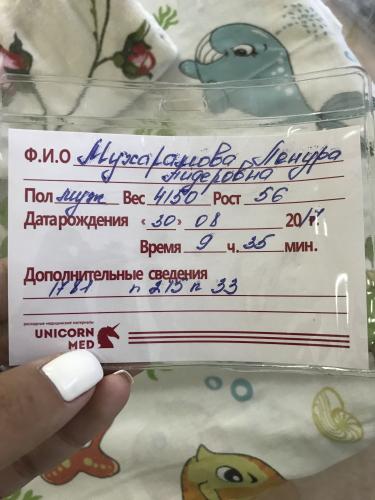 Ф.И.О Мухарамова Ленура
Пидеровна
Пол муж Вес 4150 Рост 56
Дата рождения «30» 08 20 г.
Время 9 ч. 35 мин.
Дополнительные сведения
1781 п 215 п 33
расходные медицинские материалы
UNICORN
MED